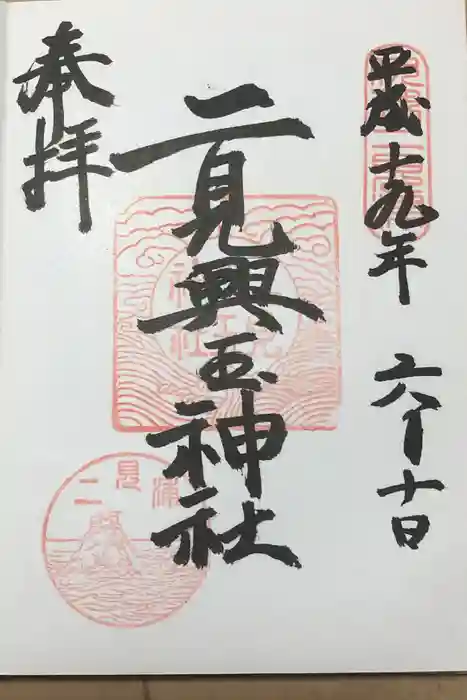 平成十九年 六月十日
二見興玉神社
奉拝
二見浦